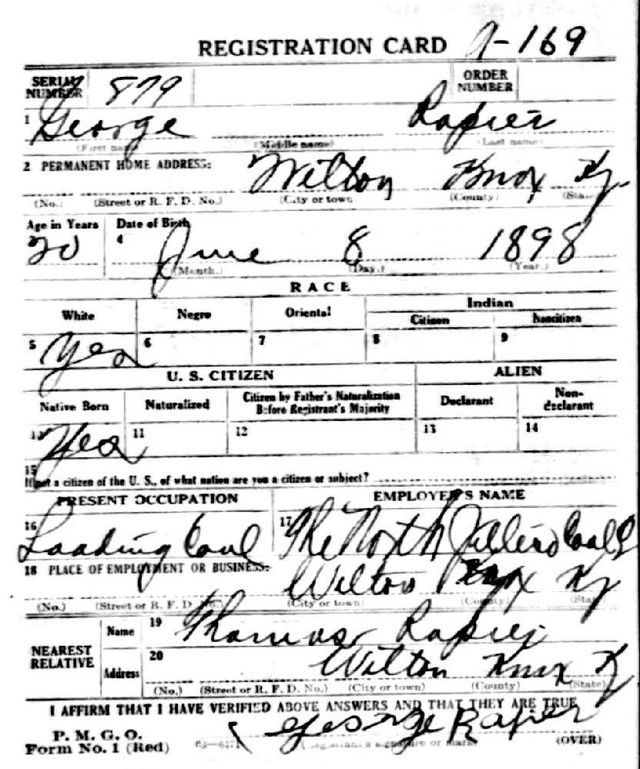 REGISTRATION CARD A-169
SERIAL NUMBER 879 ORDER NUMBER
1 George Rapier
(First name) (Middle name) (Last name)
2 PERMANENT HOME ADDRESS: Wilton Knox Ky.
(No.) (Street or R. F. D. No.) (City or town) (County) (State)
Age in Years Date of Birth
20 4 June 8 1898
(Month.) (Day.) (Year.)
RACE
White Negro Oriental Indian
Citizen Noncitizen
5 Yes 6 7 8 9
U. S. CITIZEN ALIEN
Native Born Naturalized Citizen by Father's Naturalization Before Registrant's Majority Declarant Non-declarant
10 Yes 11 12 13 14
15 If not a citizen of the U. S., of what nation are you a citizen or subject?
PRESENT OCCUPATION EMPLOYER'S NAME
16 Loading Coal 17 The North Coal
18 PLACE OF EMPLOYMENT OR BUSINESS: Wilton Knox Ky
(No.) (Street or R. F. D. No.) (City or town) (County) (State)
NEAREST RELATIVE Name 19 Thomas Rapier
Address 20 Wilton Knox Ky
(No.) (Street or R. F. D. No.) (City or town) (County) (State)
I AFFIRM THAT I HAVE VERIFIED ABOVE ANSWERS AND THAT THEY ARE TRUE
P. M. G. O.
Form No. 1 (Red) George Rapier
(Registrant's signature or mark) (OVER)